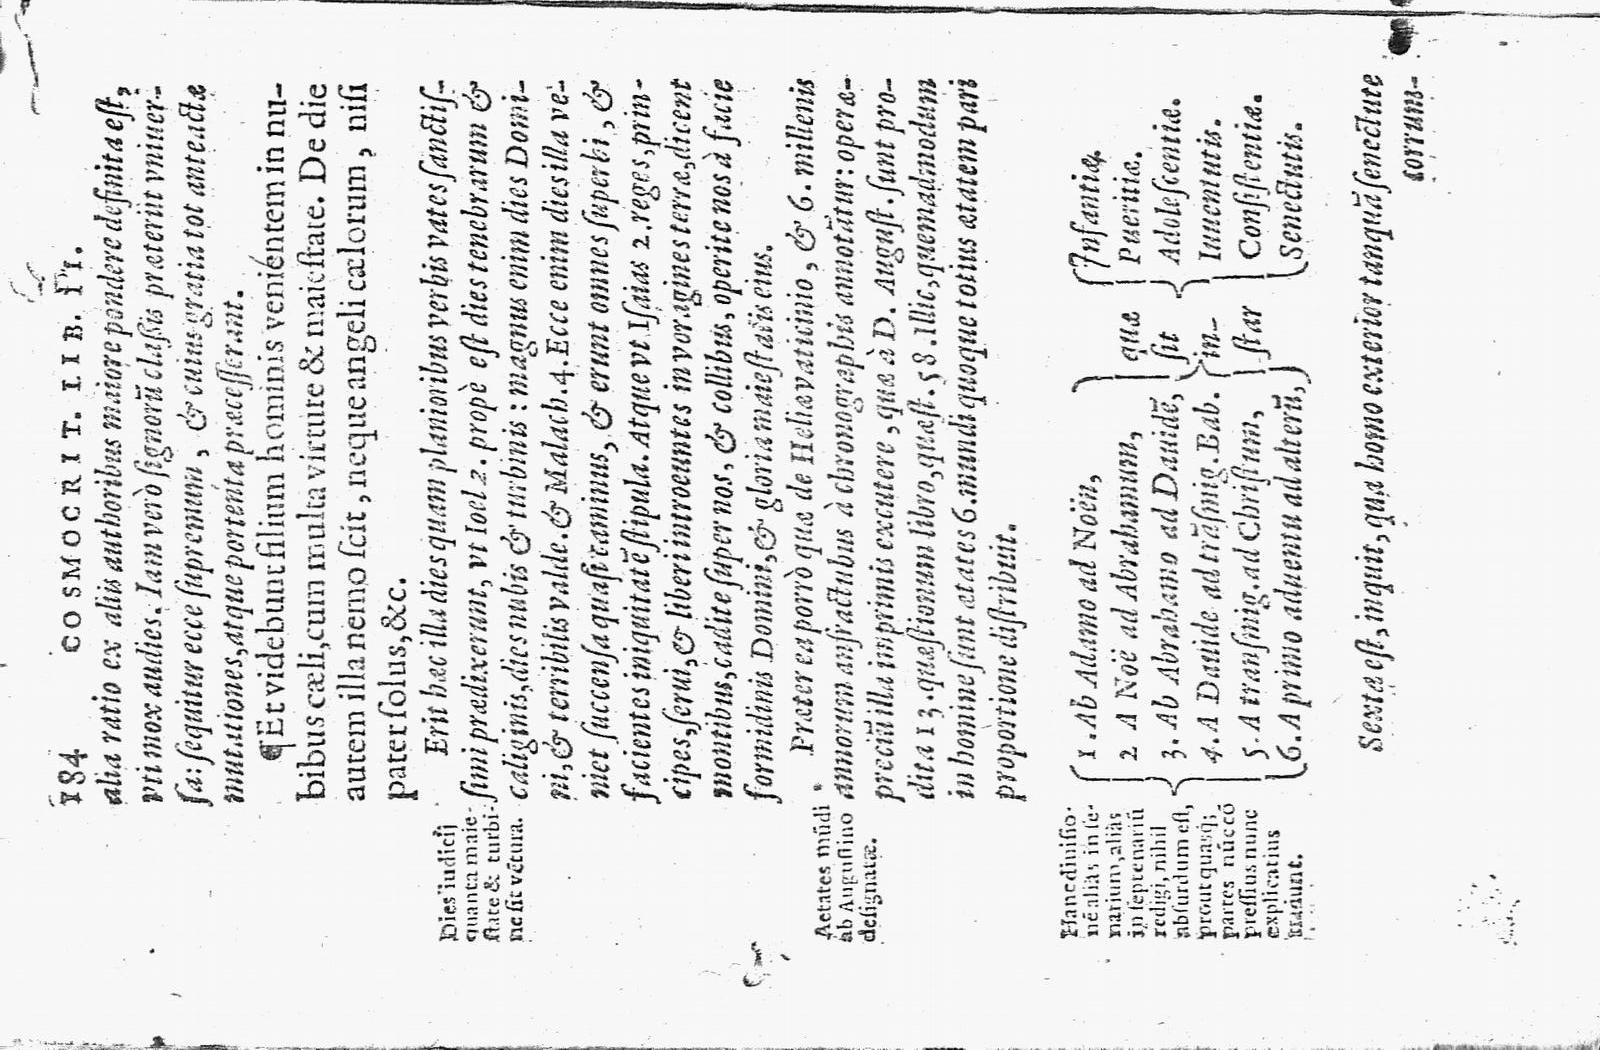 184 COSMOCRIT. LIB. II.
alia ratio ex aliis authoribus maiore pondere definita est,
vti mox audies. Iam verò signorũ classis præteriit vniuer-
sa: sequitur ecce supremum, & cuius gratia tot anteactæ
mutationes, atque portenta præcesserant.
¶ Et videbunt filium hominis venientem in nu-
bibus cæli, cum multa virtute & maiestate. De die
autem illa nemo scit, neque angeli cælorum, nisi
pater solus, &c.
Erit hæc illa dies quam planioribus verbis vates sanctis-
simi prædixerunt, vt Ioel 2. propè est dies tenebrarum &
caliginis, dies nubis & turbinis: magnus enim dies Domi-
ni, & terribilis valde. & Malach. 4. Ecce enim dies illa ve-
niet succensa quasi caminus, & erunt omnes superbi, &
facientes iniquitatẽ stipula. Atque vt Isaias 2. reges, prin-
cipes, serui, & liberi introeuntes in voragines terræ, dicent
montibus, cadite super nos, & collibus, operite nos à facie
formidinis Domini, & gloria maiestatis eius.
Dies iudicij
quanta maie-
state & turbi-
ne sit vẽtura.
Præter ea porrò quæ de Heliæ vaticinio, & 6. millenis
annorum anfractubus à chronographis annotãtur: operæ-
preciũ illa imprimis excutere, quæ à D. August. sunt pro-
dita 13. quæstionum libro, quæst. 58. Illic, quemadmodum
in homine sunt ætates 6. mundi quoque totius ætatem pari
proportione distribuit.
Aetates mũdi
ab Augustino
designatæ.
1. Ab Adamo ad Noën,
2 A Noë ad Abrahamum,
3. Ab Abrahamo ad Dauidẽ,
4. A Dauide ad trãsmig. Bab.
5. A transmig. ad Christum,
6. A primo aduentu ad alterũ,
quæ
sit
in-
star
Infantiæ.
Pueritiæ.
Adolescentiæ.
Iuuentutis.
Consistentiæ.
Senectutis.
Hanc diuisio-
nẽ aliàs in se-
narium, aliàs
in septenariũ
redigi, nihil
absurdum est,
prout quasq;
partes nũc cõ
pressius nunc
explicatius
Sexta est, inquit, qua homo exterior tanquã senectute
corrum-